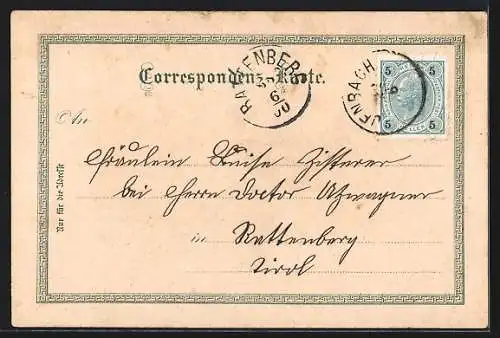 Correspondenz-Karte.
RATTENBERG
6
00
JENBACH
5 5
5 5
HELLER
An
Fräulein Luise Zisterer
bei Herrn Doctor Atzwanger
in Rattenberg
Tirol
Nur für die Adresse